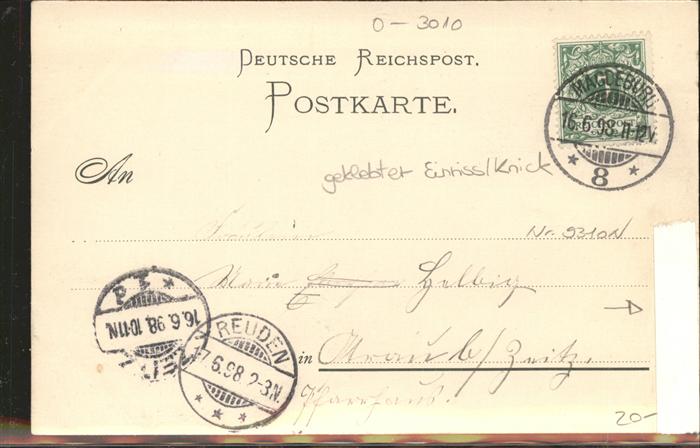 0-3010
DEUTSCHE REICHSPOST.
POSTKARTE.
MAGDEBURG
16.6.98.11-12V.
* 8 *
An
geklebter Einriss/Knick
Fräulein
Nr. 9310N
Marie Helbig
16.6.98.10-11N.
ZEITZ
REUDEN
17.6.98.2-3N.
in b/Zeitz.
Pfarrhaus.
20-